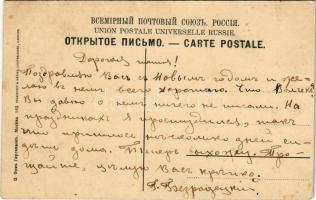 ВСЕМІРНЫЙ ПОЧТОВЫЙ СОЮЗЪ. РОССІЯ.
UNION POSTALE UNIVERSELLE RUSSIE.
ОТКРЫТОЕ ПИСЬМО. — CARTE POSTALE.
Дорогая
Поздравляю Васъ съ Новымъ годомъ и же-
лаю въ немъ всего хорошаго. Что
Вы давно о немъ ничего не писали. На
праздникахъ я простудился, такъ
что пришлось нѣсколько дней си-
дѣть дома. Теперь выхожу. Про-
щайте, цѣлую Васъ крѣпко.